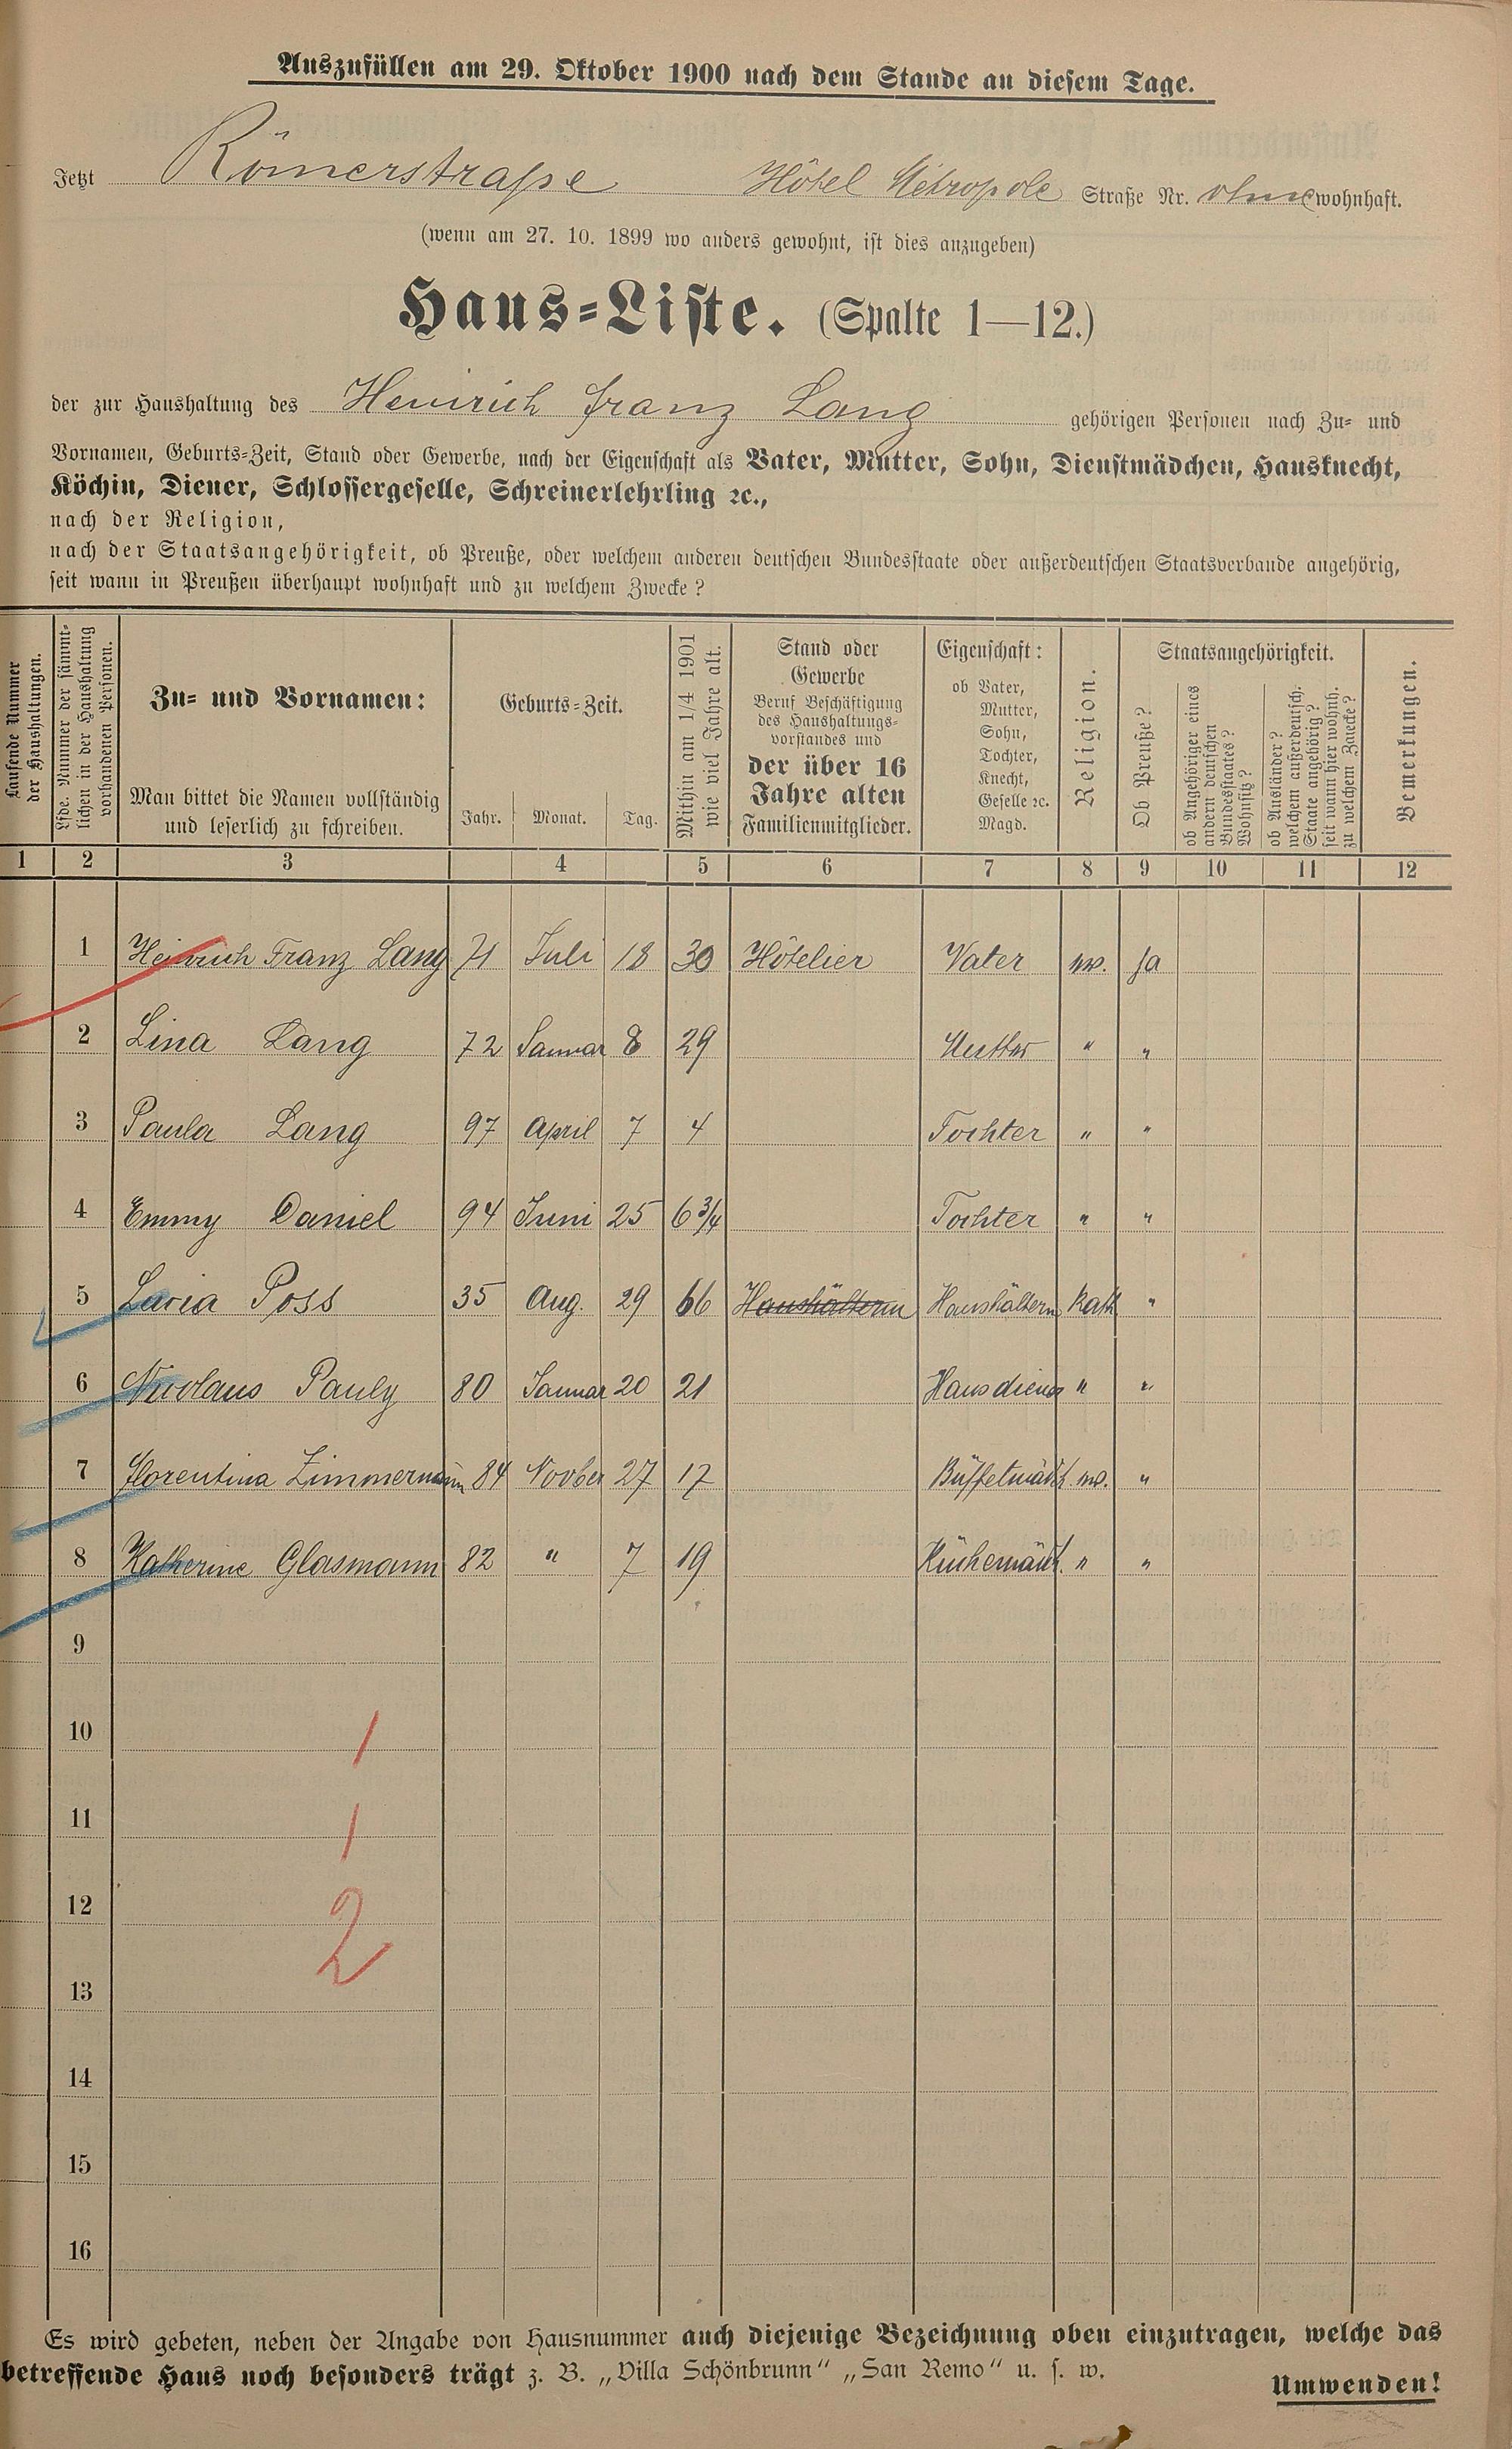 Auszufüllen am 29. Oktober 1900 nach dem Stande an diesem Tage.
Jetzt Römerstraße Hôtel Métropole Straße Nr. ohne wohnhaft.
(wenn am 27. 10. 1899 wo anders gewohnt, ist dies anzugeben)
Haus=Liste. (Spalte 1—12.)
der zur Haushaltung des Heinrich Franz Lang gehörigen Personen nach Zu= und
Vornamen, Geburts=Zeit, Stand oder Gewerbe, nach der Eigenschaft als Vater, Mutter, Sohn, Dienstmädchen, Hausknecht,
Köchin, Diener, Schlossergeselle, Schreinerlehrling ꝛc.,
nach der Religion,
nach der Staatsangehörigkeit, ob Preuße, oder welchem anderen deutschen Bundesstaate oder außerdeutschen Staatsverbande angehörig,
seit wann in Preußen überhaupt wohnhaft und zu welchem Zwecke?
Laufende Nummer
der Haushaltungen.
Lfde. Nummer der sämmt-
lichen in der Haushaltung
vorhandenen Personen.
Zu= und Vornamen:
Man bittet die Namen vollständig
und leserlich zu schreiben.
Geburts=Zeit.
Jahr. Monat. Tag.
Mithin am 1/4 1901
wie viel Jahre alt.
Stand oder
Gewerbe
Beruf Beschäftigung
des Haushaltungs=
vorstandes und
der über 16
Jahre alten
Familienmitglieder.
Eigenschaft:
ob Vater,
Mutter,
Sohn,
Tochter,
Knecht,
Geselle ꝛc.
Magd.
Religion.
Staatsangehörigkeit.
Ob Preuße?
ob Angehöriger eines
andern deutschen
Bundesstaates?
Wohnsitz?
ob Ausländer?
welchem außerdeutsch.
Staate angehörig?
seit wann hier wohnh.
zu welchem Zwecke?
Bemerkungen.
1 2 3 4 5 6 7 8 9 10 11 12
1 Heinrich Franz Lang 71 Juli 18 30 Hôtelier Vater ev. ja
2 Lina Lang 72 Januar 8 29 Mutter " "
3 Paula Lang 97 April 7 4 Tochter " "
4 Emmy Daniel 94 Juni 25 6 3/4 Tochter " "
5 Poss 35 Aug. 29 66 Haushälterin Haushälterin Kath. "
6 Nicolaus Pauly 80 Januar 20 21 Hausdiener " "
7 Florentina Zimmermann 84 Novber 27 17 Büffetmädch. ev. "
8 Katherine Glasmann 82 " 7 19 Küchemädch. " "
9
10
1
11
1
12
2
13
14
15
16
Es wird gebeten, neben der Angabe von Hausnummer auch diejenige Bezeichnung oben einzutragen, welche das
betreffende Haus noch besonders trägt z. B. „Villa Schönbrunn“ „San Remo“ u. s. w.
Umwenden!